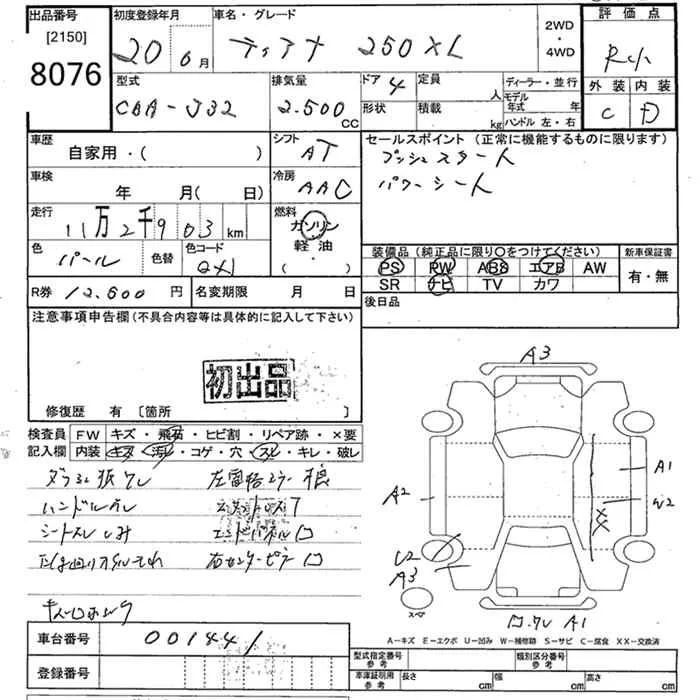 出品番号 初度登録年月 車名・グレード 2WD・4WD 評価点
[2150] 8076 20 6月 ティアナ 250XL
型式 排気量 ドア 4 定員 人 ディーラー・並行 外装 内装
CBA-J32 2.500 CC 形状 積載 kg モデル年式 年 ハンドル 左・右 C D
車歴 自家用・( ) シフト AT セールスポイント (正常に機能するものに限ります)
プッシュスタート
車検 年 月( 日) 冷房 AAC パワーシート
走行 11万2千903 km 燃料 ガソリン 軽油 ・( )
色 パール 色替 色コード QX1
装備品 (純正品に限り〇をつけてください) 新車保証書
PS PW ABS エアB AW 有・無
SR ナビ TV カワ
R券 12.500 円 名変期限 月 日 後日品
注意事項申告欄 (不具合内容等は具体的に記入して下さい)
初出品
修復歴 有 [箇所 ]
検査員 FW キズ・飛石・ヒビ割・リペア跡・×要
記入欄 内装 キズ・汚レ・コゲ・穴・スレ・キレ・破レ
ハンドルスレ
エンドパネル
右センターピラー
A3
A1
A2
W2
XX
U2
A3
スペア
A1
A-キズ E-エクボ U-凹み W-補修跡 S-サビ C-腐食 XX-交換済
車台番号 001441
登録番号
型式指定番号 参考 類別区分番号 参考
車庫証明用 参考 長さ cm 幅 cm 高さ cm